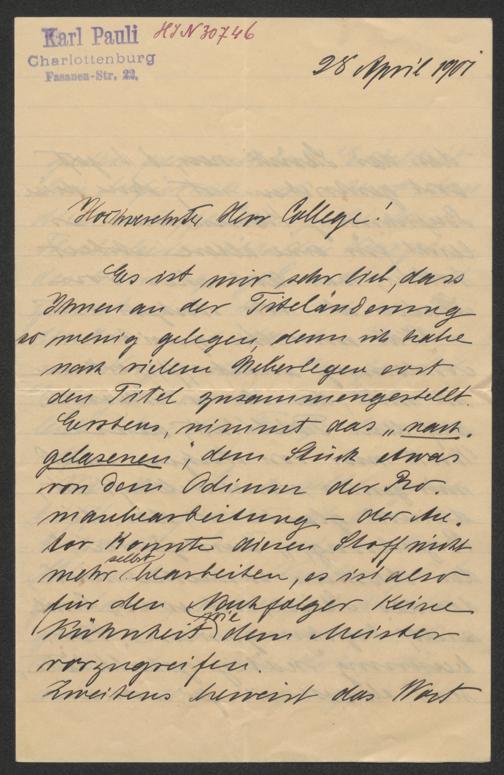 Karl Pauli
Charlottenburg
Fasanen-Str. 22.
HIN 30746
28 April 1901
Hochverehrter Herr College!
Es ist mir sehr lieb, dass
Ihnen an der Titeländerung
so wenig gelegen, denn ich habe
nach vielem Ueberlegen erst
den Titel zusammengestellt.
Erstens, nimmt das „nach-
gelasenen“, dem Stück etwas
von dem Odium der Ro-
manbearbeitung – der Au-
tor konnte diesen Stoff nicht
mehr selbst bearbeiten, es ist also
für den Nachfolger keine
Kühnheit wie dem Meister
vorzugreifen.
Zweitens beweist das Wort